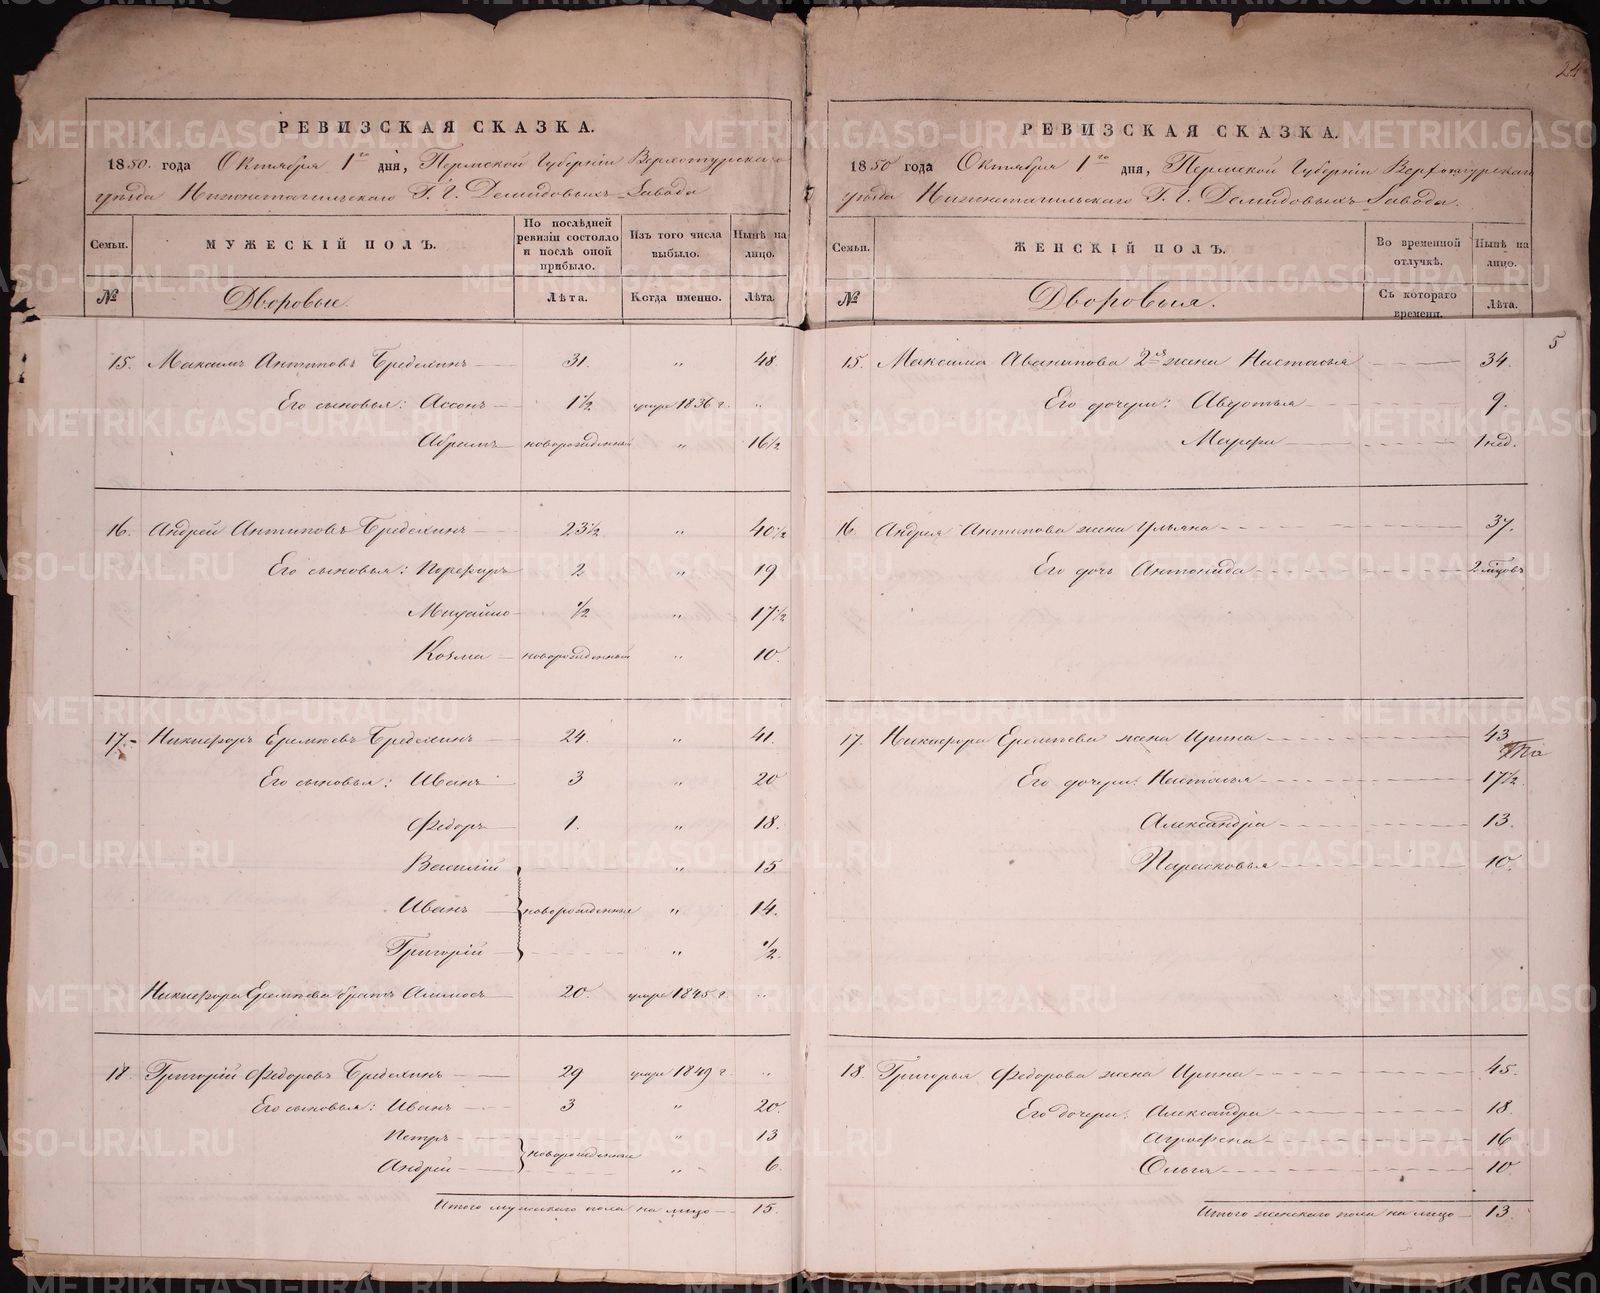 24
РЕВИЗСКАЯ СКАЗКА.
1850. года Октября 1го дня, Пермской Губерніи Верхотурскаго
уѣзда Нижнетагильскаго Г. Г. Демидовыхъ Завода
Семьи. МУЖЕСКІЙ ПОЛЪ. По послѣдней ревизіи состояло и послѣ оной прибыло. Изъ того числа выбыло. Нынѣ на лицо.
№ Дворовые. Лѣта. Когда именно. Лѣта
15. Максимъ Антиповъ Бредихинъ 31. " 48
Его сыновья: Ассонъ 1½ умре 1836 г. "
Абрамъ новорожденный " 16½
16. Андрей Антиповъ Бредихинъ 23½ " 40½
Его сыновья: Порфиръ 2 " 19
Михайло ½ " 17½
Козма новорожденный " 10.
17. Никифоръ Еремѣевъ Бредихинъ 24. " 41.
Его сыновья: Иванъ 3 " 20
Федоръ 1. " 18.
Василій " 15
Иванъ новорожденныя " 14.
Григорій " ½
Никифора Еремѣева братъ Аммосъ 20. умре 1845 г. "
18. Григорій Федоровъ Бредихинъ 29 умре 1849 г. "
Его сыновья: Иванъ 3 " 20.
Петръ новорожденные " 13
Андрей " 6.
Итого мужескаго пола на лицо 15.
РЕВИЗСКАЯ СКАЗКА.
1850 года Октября 1го дня, Пермской Губерніи Верхотурскаго
уѣзда Нижнетагильскаго Г. Г. Демидовыхъ Завода.
Семьи. ЖЕНСКІЙ ПОЛЪ. Во временной отлучкѣ. Нынѣ на лицо.
№ Дворовыя. Съ котораго времени. Лѣта.
5
15. Максима Антипова 2я жена Настасья 34.
Его дочери: Авдотья 9.
Марфа 1 нед.
16. Андрея Антипова жена Ульяна 37.
Его дочь Антонида 2 мѣсяц.
17. Никифора Еремѣева жена Ирина 43
Его дочери: Настасья 17½
Александра 13.
Парасковья 10.
18. Григорья Федорова жена Ирина 45.
Его дочери: Александра 18.
Агрофена 16
Ольга 10
Итого женскаго пола на лицо 13.
METRIKI.GASO-URAL.RU